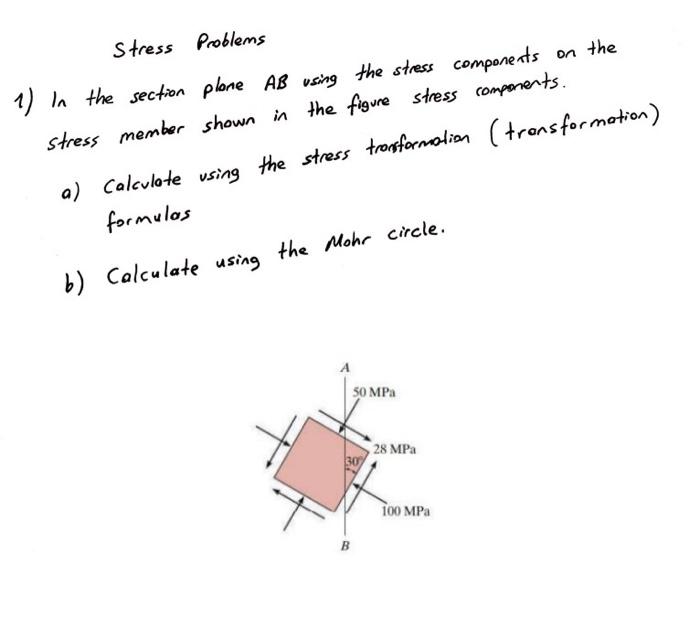 Stress Problems
1) In the section plane AB using the stress components on the
stress member shown in the figure stress components.
a) Calculate using the stress transformation (transformation)
formulas
b) Calculate using the Mohr circle.
A
50 MPa
28 MPa
30°
100 MPa
B